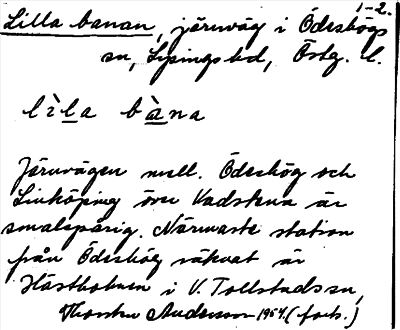 1-2.
Lilla banan, järnväg i Ödeshögs
sn, Lysings hd, Östg. l.
lìla bàna
Järnvägen mell. Ödeshög och
Linköping över Vadstena är
smalspårig. Närmaste station
från Ödeshög räknat är
Hästholmen i V. Tollstads sn,
Andersson 1954. (forts.)